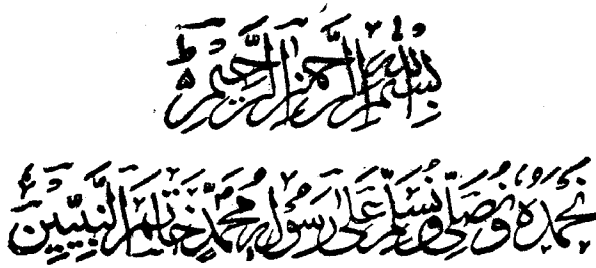 بِسْمِ اللّٰهِ الرَّحْمٰنِ الرَّحِيْمِ ط
نَحْمَدُهٗ وَنُصَلِّيْ وَنُسَلِّمُ عَلٰى رَسُوْلِهٖ مُحَمَّدٍ خَاتَمِ النَّبِيِّيْنَ